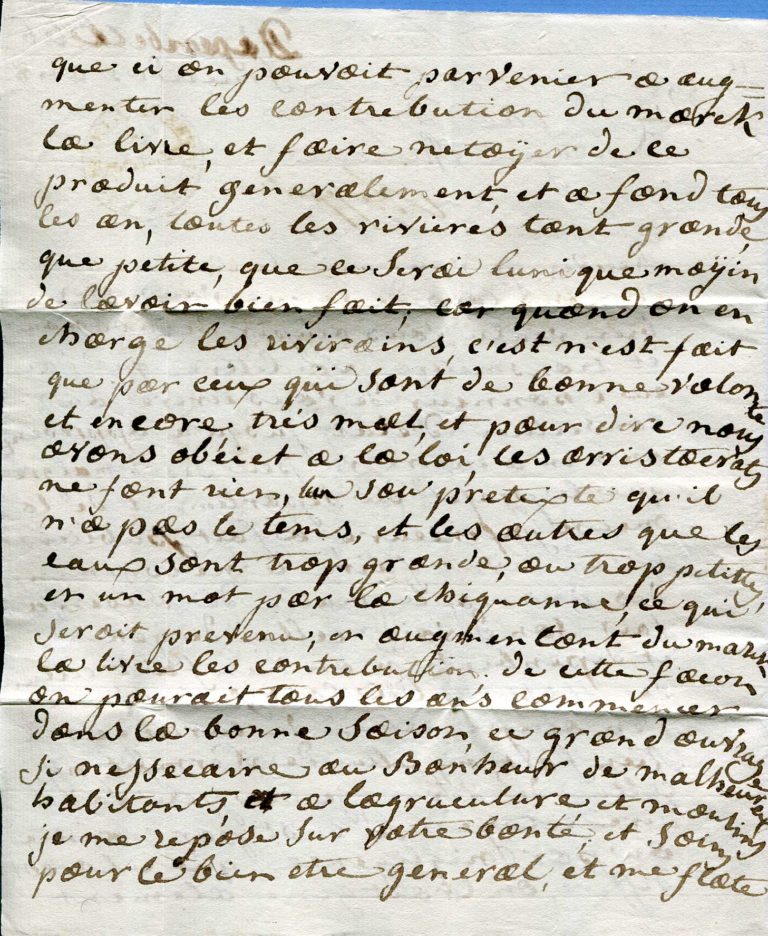 que ci on pouvoit parvenier a aug=
menter les contrebution du marck
la livre, et faire netoÿer de ce
produit generalement, et a fond tous
les an, toutes les rivieres tant grande
que petite, que ce Serai lunique moÿin
de lavoir bien fait, car quand on en
charge les rivirains, c'est n'est fait
que par ceux qui sont de bonne volonte
et encore trés mal, et pour dire nous
avons obéiet a la loi, les arristocrats
ne font rien, sou pretexte qu'il
n'a pas le tems, et les autres que les
eaux sont trop grande, ou trop petittes,
en un mot par la chiquanne, ce qui
serait prevenu, en augmentant du marck
la livre les contrebution. de cette facon
on pourait tous les an's commencer
dans la bonne saison, ce grand ouvrage
si nessecaire au Bonheur de malheureux
habitants, et a lagruculture et moulins
je me repose sur votre bonté, et soins
pour le bien etre general, et me flate